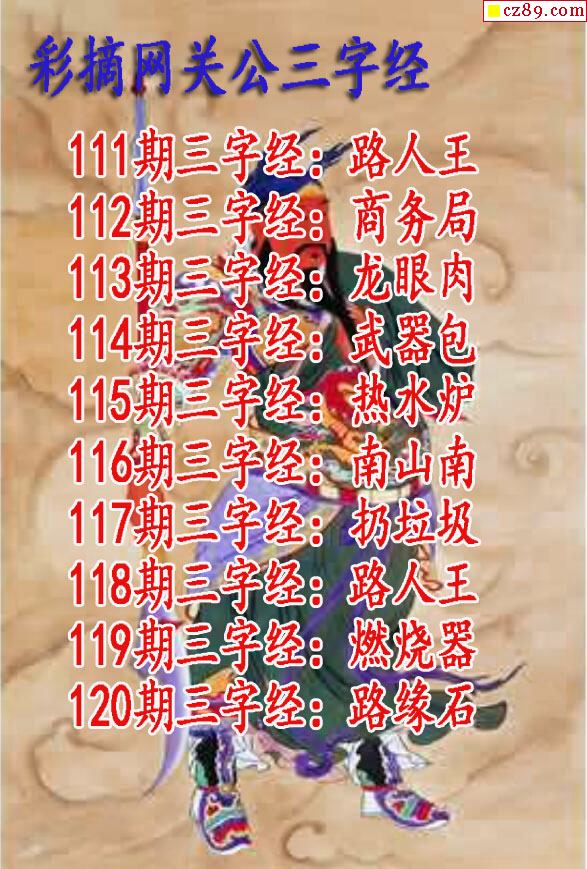 cz89.com
彩摘网关公三字经
111期三字经：路人王
112期三字经：商务局
113期三字经：龙眼肉
114期三字经：武器包
115期三字经：热水炉
116期三字经：南山南
117期三字经：扔垃圾
118期三字经：路人王
119期三字经：燃烧器
120期三字经：路缘石